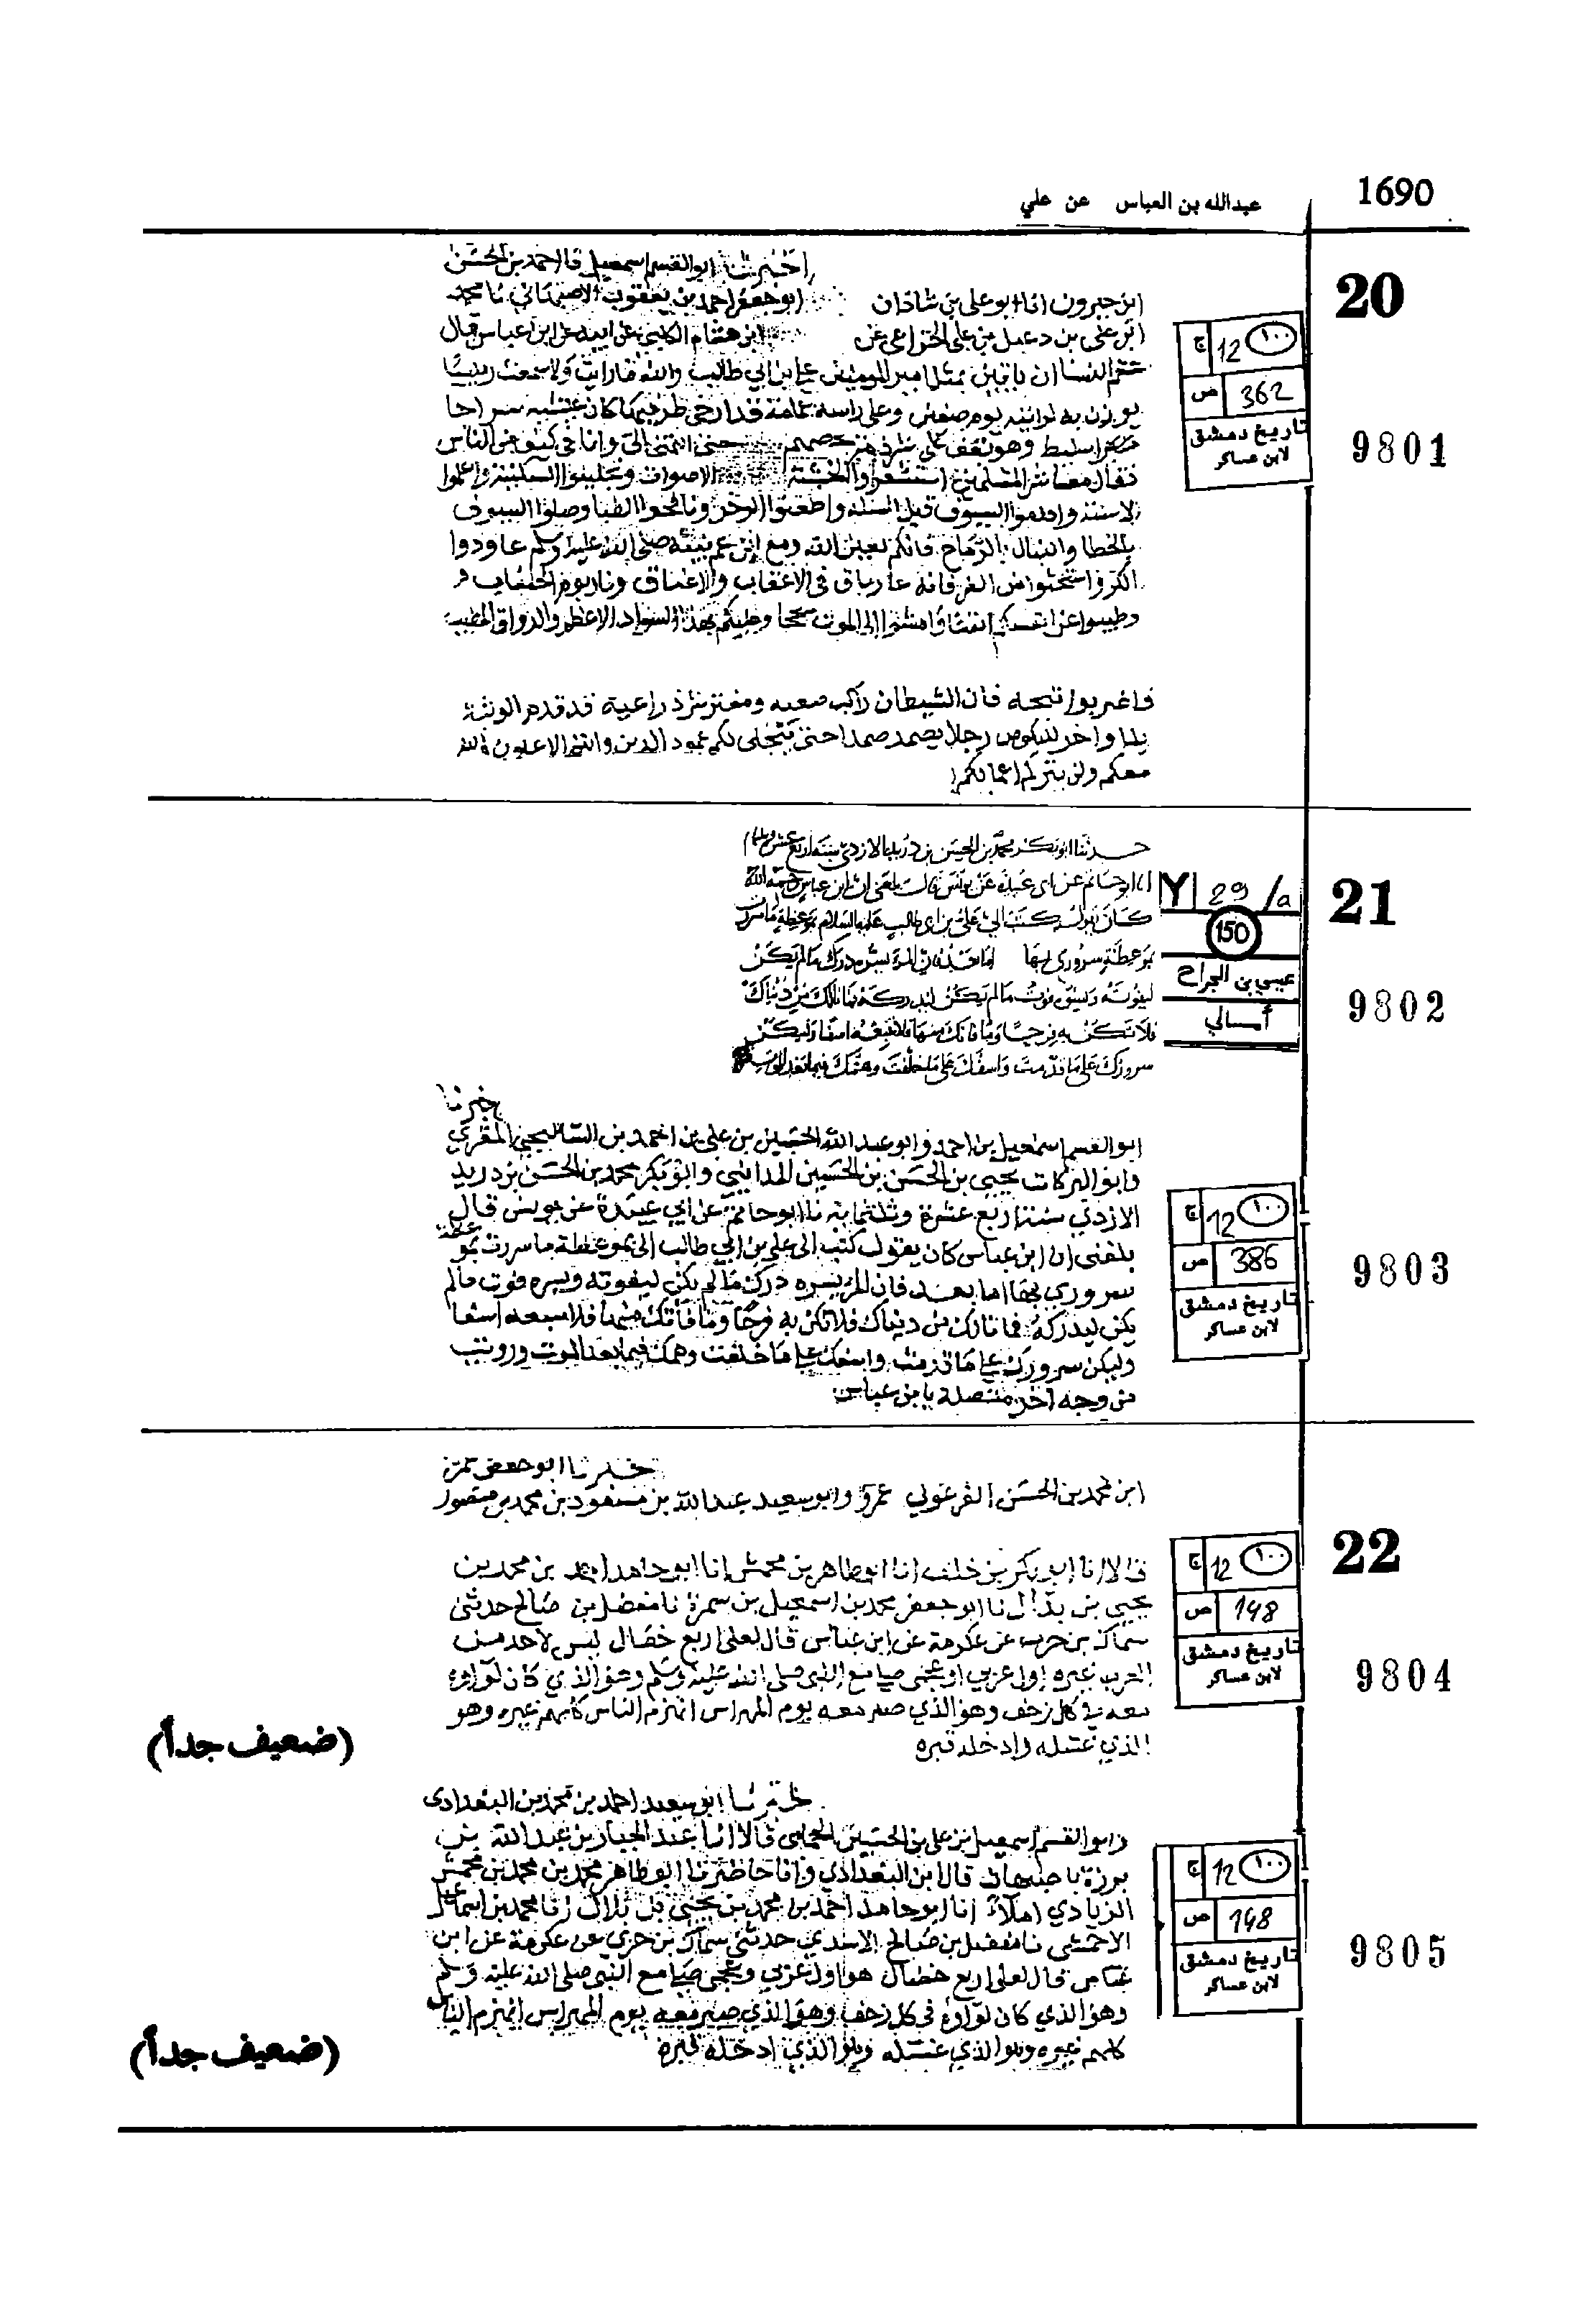 1690
عبدالله بن العباس عن علي
20
اخبرنا ابو القسم اسمعيل
ابن خيرون انا ابو علي بن شاذان ابو جعفر احمد بن يعقوب الاصبهاني نا محمد
ابن علي بن دعبل بن علي الخزاعي عن ابن هشام الكلبي عن ابيه عن ابن عباس قال
عقم النسا ان ياتين بمثل امير المومنين علي بن ابي طالب والله ما رايت ولا سمعت رئيسا
يوزن به لرايته يوم صفين وعلى راسه عمامة قد ارخى طرفيها كان عينيه سراجا
سليط وهو يقف على حتى انتهى الي وانا في كنف من الناس
فقال معاشر المسلمين استشعروا الخشية الاصوات وتجلببوا السكينة واعملوا
الاسنة السيوف قبل السلة واطعنوا الوخز ونافحوا الظبا وصلوا السيوف
بالخطا والنبال بالرماح فانكم بعين الله ومع ابن عم نبيه صلى الله عليه وسلم عاودوا
الكر واستحيوا من الفر فانه عار باق في الاعقاب والاعناق ونار يوم الحساب و
وطيبوا عن انفسكم انفسا وامشوا الى الموت وعليكم بهذا السواد الاعظم والرواق المطنب
فاضربوا ثبجه فان الشيطان راكب صعبه ومفترش ذراعيه قد قدم الوثبة
يدا واخر للنكوص رجلا يصمد صمدا حتى يتجلى لكم عمود الدين وانتم الاعلون والله
معكم ولن يتركم اعمالكم
ج 12 ١٠٠
ص 362
تاريخ دمشق
لابن عساكر
9801
21
حدثنا ابو بكر محمد بن الحسن بن دريد الازدي سنة اربع عشر
ابو حاتم عن ابي عبيدة عن يونس قال بلغني ان ابن عباس رحمه الله
كان يقول كتب الي علي بن ابي طالب عليه السلام بموعظة ما سررت
بموعظة سروري بها اما بعد فان المرء يسره درك ما لم يكن
ليفوته ويسؤه فوت ما لم يكن ليدركه فما نالك من دنياك
فلا تكن به فرحا وما فاتك منها فلا تتبعه اسفا وليكن
سرورك على ما قدمت واسفك على ما خلفت وهمك فيما بعد الموت
29/a
150
عيسى بن الجراح
أمالي
9802
اخبرنا
ابو القسم اسمعيل بن احمد وابو عبد الله الحسين بن علي بن احمد بن المقري
وابو البركات يحيى بن الحسن بن الحسين المدايني وابو بكر محمد بن الحسن بن دريد
الازدي سنة اربع عشرة وثلثماية نا ابو حاتم عن ابي عبيدة عن يونس قال
بلغني ان ابن عباس كان يقول كتب الي علي بن ابي طالب الي بموعظة ما سررت بموعظة
سروري بها اما بعد فان المرء يسره درك ما لم يكن ليفوته ويسره فوت مالم
يكن ليدركه فما نالك من دنياك فلا تكن به فرحا وما فاتك منها فلا تتبعه اسفا
وليكن سرورك على ما قدمت واسفك على ما خلفت وهمك فيما بعد الموت ورويت
من وجه اخر متصلة بابن عباس
ج 12 ١٠٠
ص 386
تاريخ دمشق
لابن عساكر
9803
22
اخبرنا ابو جعفر
ابن محمد بن الحسن الفرغولي وابو سعيد عبد الله بن مسعود بن محمد بن منصور
قالا انا ابو بكر بن خلف انا ابو طاهر بن محمش انا ابو حامد احمد بن محمد بن
يحيى بن بلال نا ابو جعفر محمد بن اسمعيل بن سمرة نا مفضل بن صالح حدثني
سماك بن حرب عن عكرمة عن ابن عباس قال لعلي اربع خصال ليس لاحد من
العرب غيره اول عربي او عجمي صلى مع النبي صلى الله عليه وسلم وهو الذي كان لواؤه
معه في كل زحف وهو الذي صبر معه يوم المهراس انهزم الناس كلهم غيره وهو
الذي غسله وادخله قبره
(ضعيف جداً)
ج 12 ١٠٠
ص 148
تاريخ دمشق
لابن عساكر
9804
اخبرنا ابو سعيد احمد بن محمد بن البغدادي
وابو القسم اسمعيل بن علي بن الحسين الحمامي قالا انا عبد الجبار بن عبد الله بن
برزة باصبهان قال ابن البغدادي وانا حاضر نا ابو طاهر محمد بن محمد بن محمش
الزيادي املاء انا ابو حامد احمد بن محمد بن يحيى بن بلال نا محمد بن اسماعيل
الاحمسي نا مفضل بن صالح الاسدي حدثني سماك بن حرب عن عكرمة عن ابن
عباس قال لعلي اربع خصال هو اول عربي وعجمي صلى مع النبي صلى الله عليه وسلم
وهو الذي كان لواؤه في كل زحف وهو الذي صبر معه يوم المهراس انهزم الناس
كلهم غيره وهو الذي غسله وهو الذي ادخله قبره
(ضعيف جداً)
ج 12 ١٠٠
ص 148
تاريخ دمشق
لابن عساكر
9805